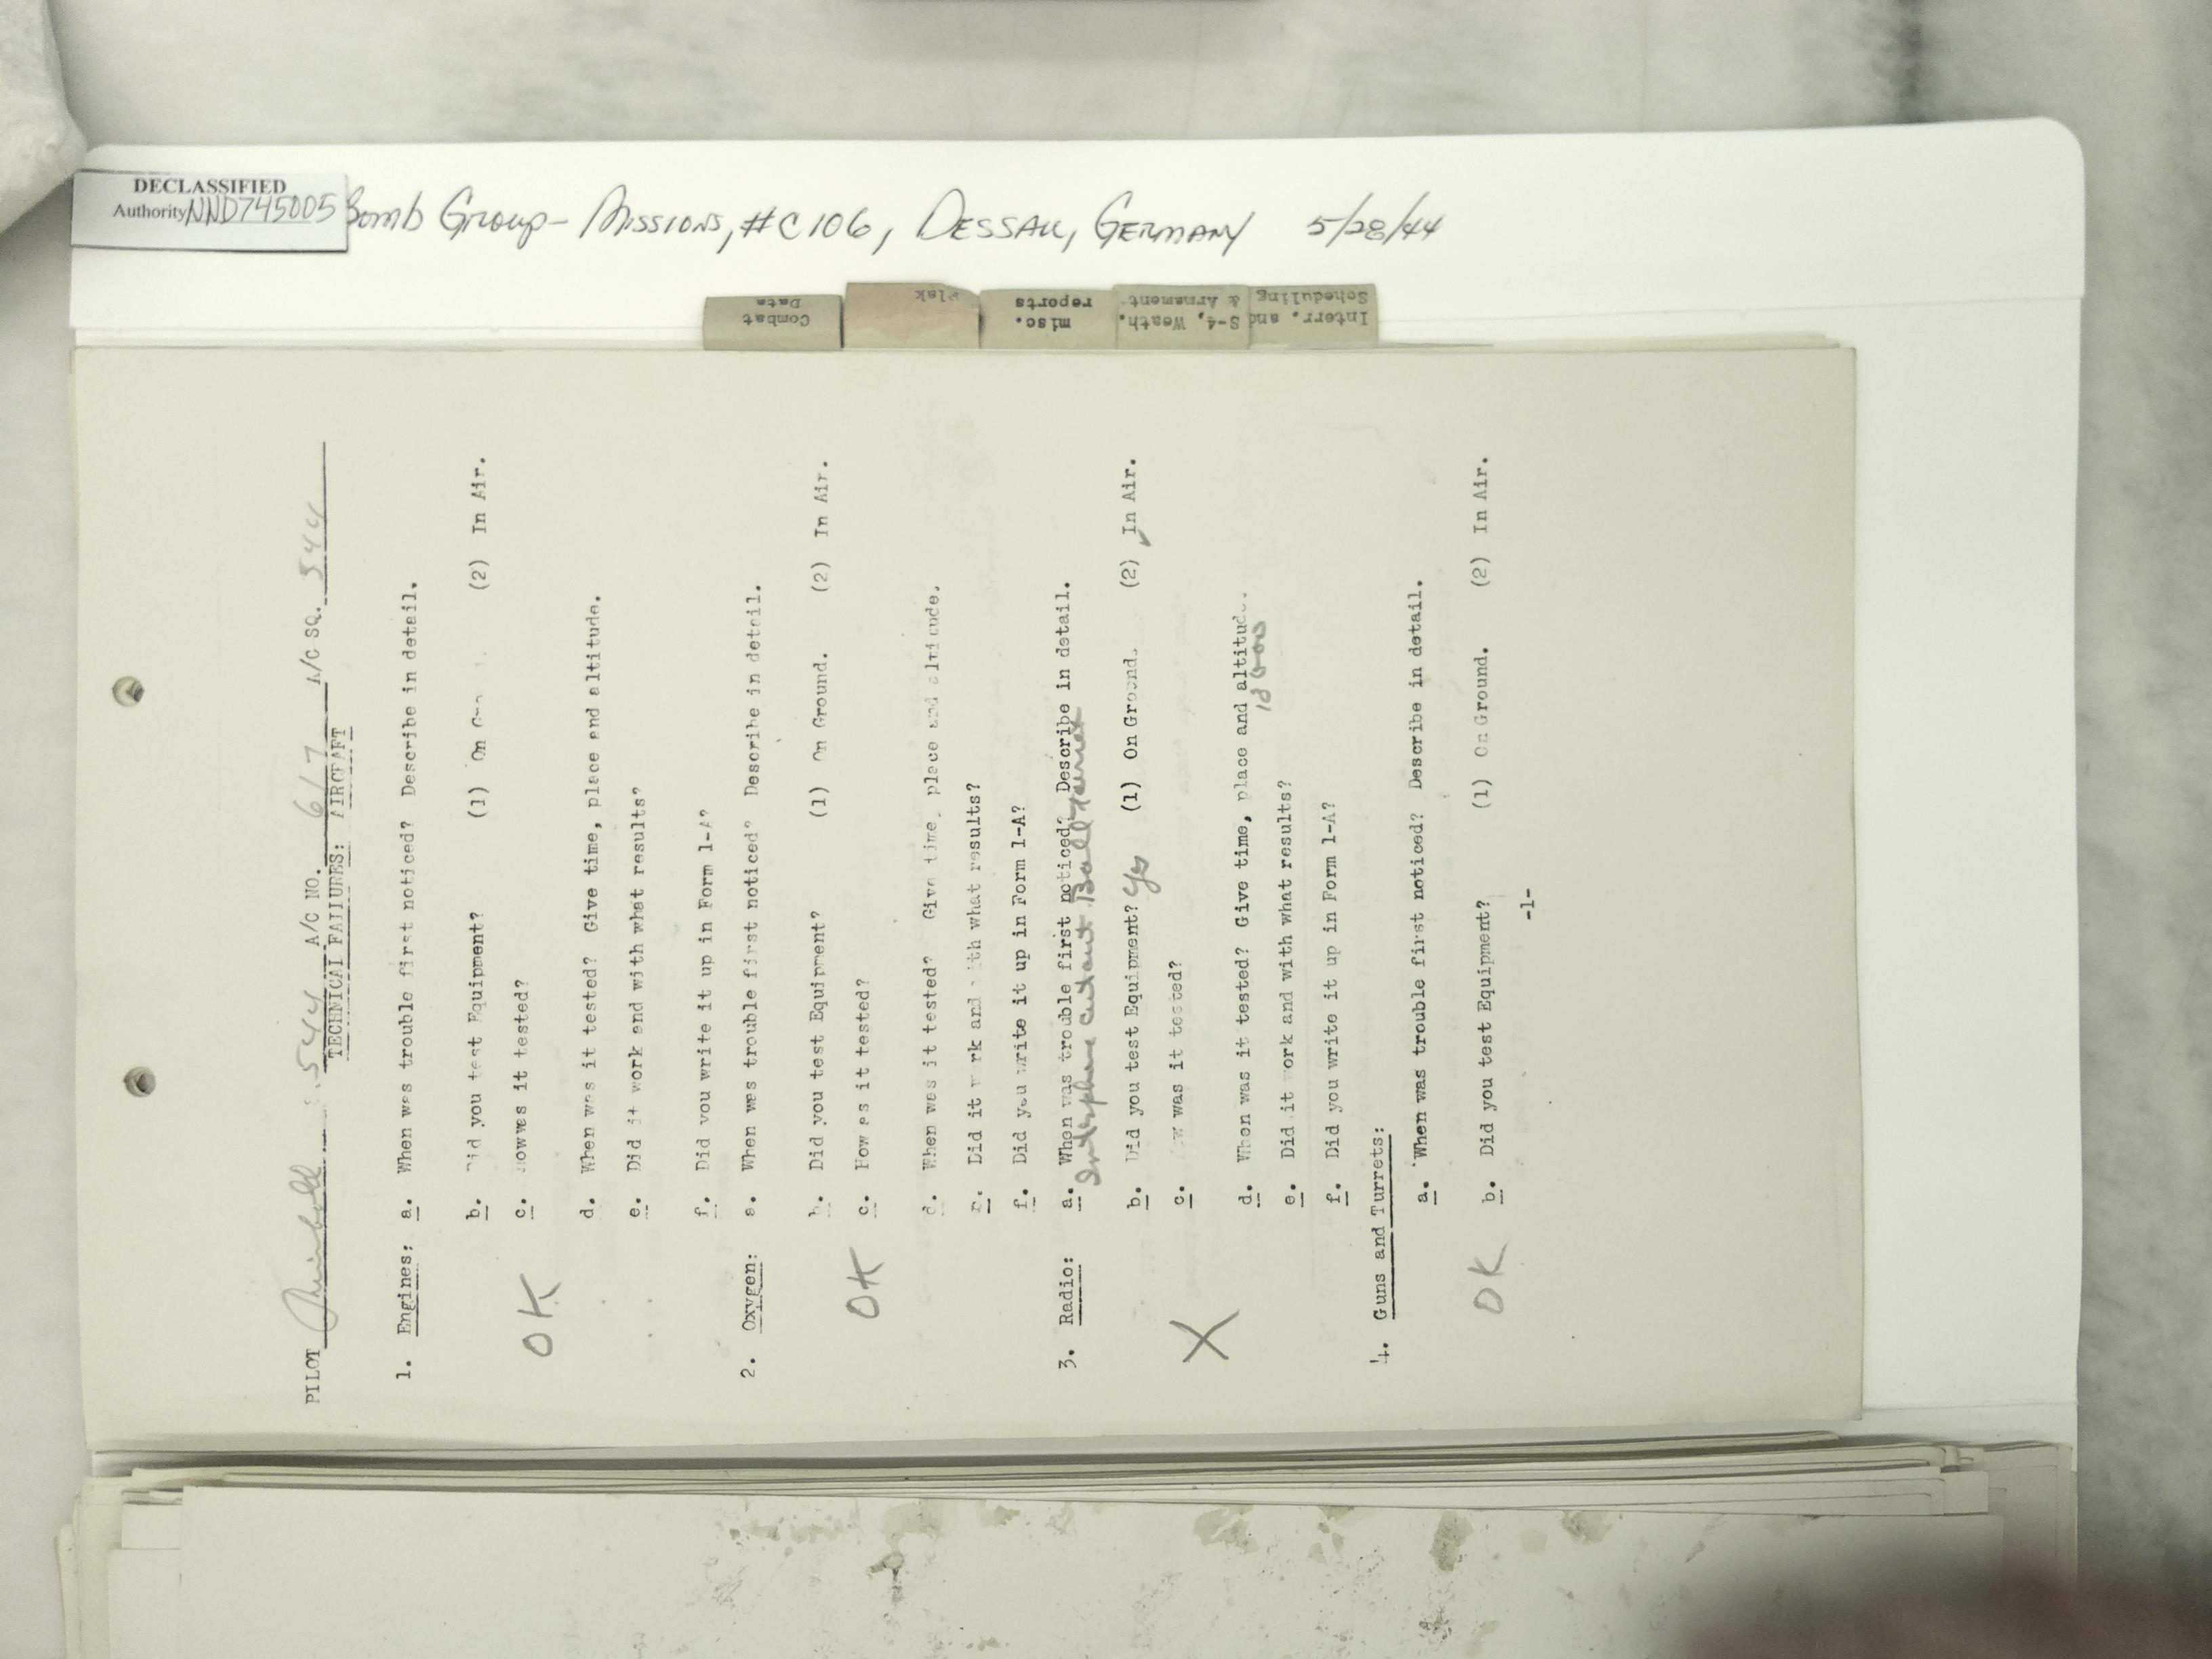 DECLASSIFIED
Authority NND745005
Bomb Group- Missions, #C106, Dessau, Germany 5/28/44
Combat
Data
Flak
misc.
reports
S-4, Weath.
& Armament
Interr. and
Scheduling
PILOT 544 A/C NO. 617 A/C SQ. 544
TECHNICAL FAILURES: AIRCRAFT
1. Engines: a. When was trouble first noticed? Describe in detail.
b. Did you test Equipment? (1) On (2) In Air.
c. How was it tested?
OK
d. When was it tested? Give time, place and altitude.
e. Did it work and with what results?
f. Did you write it up in Form 1-A?
2. Oxygen: a. When was trouble first noticed? Describe in detail.
b. Did you test Equipment? (1) On Ground. (2) In Air.
c. How as it tested?
OK
d. When was it tested? Give time, place and altitude.
e. Did it work and with what results?
f. Did you write it up in Form 1-A?
3. Radio: a. When was trouble first noticed? Describe in detail.
Interphone cut out Ball turret
b. Did you test Equipment? Yes (1) On Ground. (2) ✓ In Air.
c. How was it tested?
X
d. When was it tested? Give time, place and altitude.
e. Did it work and with what results?
f. Did you write it up in Form 1-A?
4. Guns and Turrets:
a. When was trouble first noticed? Describe in detail.
OK
b. Did you test Equipment? (1) On Ground. (2) In Air.
-1-